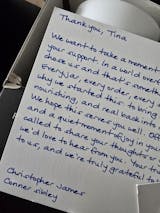 Thank you, Tina
We want to take a moment to
your support. In a world over
chose us and that is someth
every order, every
why we started this to bring
and real
We hope this serves you well. Or
and a quiet moment of joy in you
called to share your thoughts or
we'd love to hear from you. Your
to us, and we're truly grateful to
Christopher James
Conner Sibley